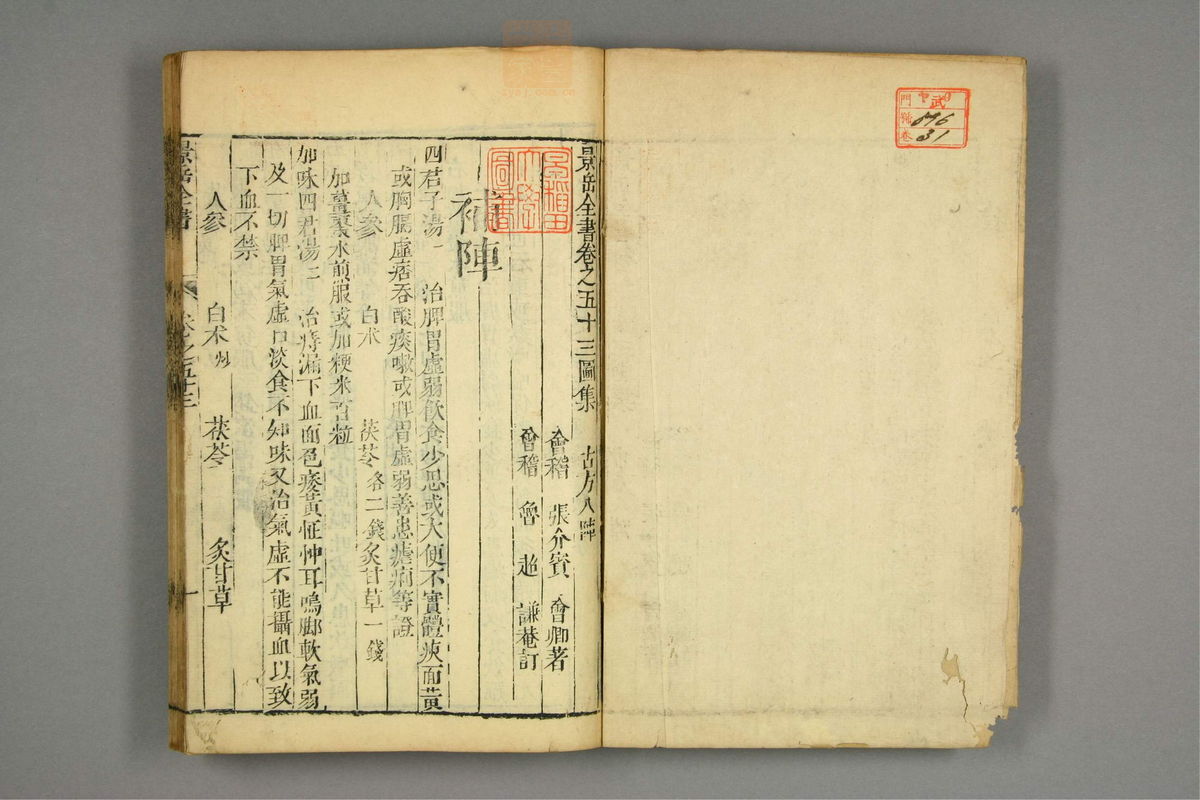 景岳全書卷之五十三圖集 古方八陣
會稽 張介賓 會卿著
會稽 魯超 謙菴訂
補陣
四君子湯一 治脾胃虛弱飲食少思或大便不實體瘦面黃
或胸膈虛痞吞酸痰嗽或脾胃虛弱善患瘧痢等證
人參 白朮 茯苓各二錢炙甘草一錢
加薑棗水煎服或加粳米百粒
加味四君湯二 治痔漏下血面色痿黃怔忡耳鳴脚軟氣弱
及一切脾胃氣虛口淡食不知味又治氣虛不能攝血以致
下血不禁
人參 白朮炒 茯苓 炙甘草
景岳全書 卷之五十三 一
早稻田大學圖書
門
號 876
卷 31